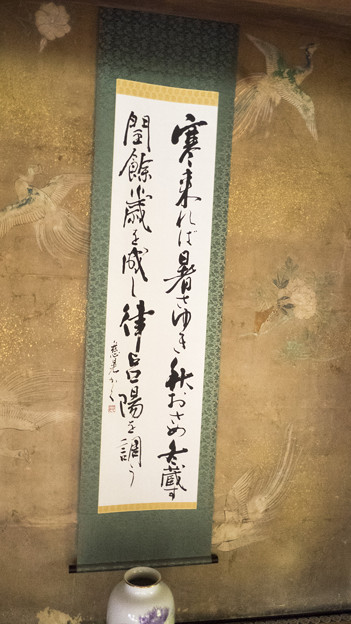 寒来れば暑さゆき秋おさめ冬蔵す
閏餘歳を成し律呂陽を調う
かく